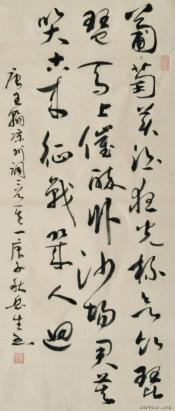 葡萄美酒夜光杯欲飲琵
琶马上催醉卧沙場君莫
笑古来征戰幾人迴
唐王翰凉州词庚子秋生书